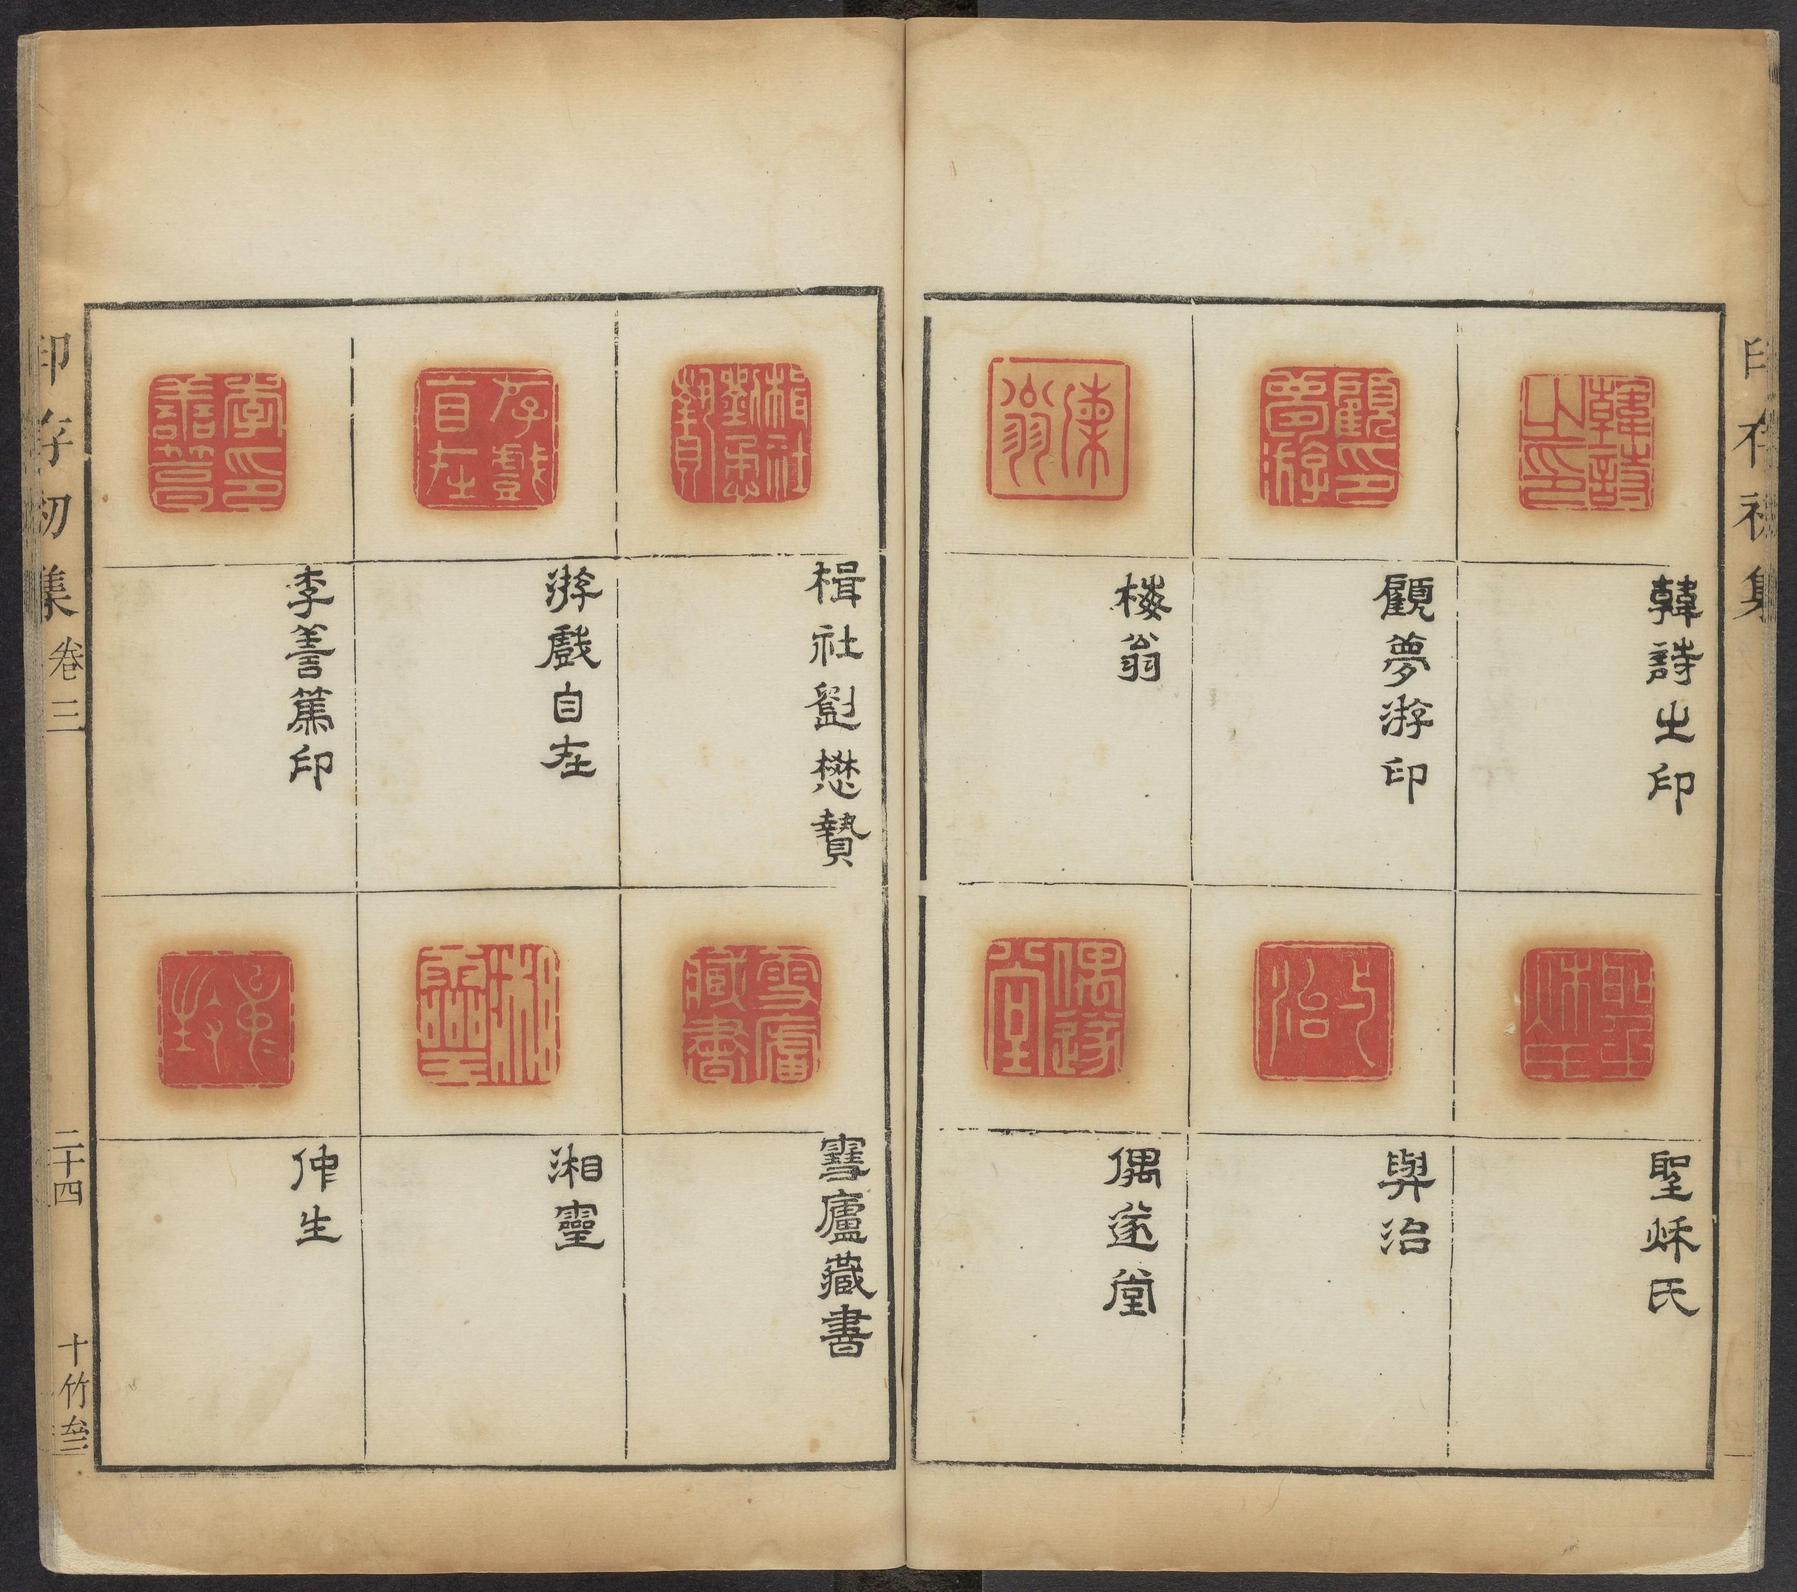 印存初集
韓詩之印
顧夢游印
楳翁
聖秌氏
與治
偶遂堂
楫社劉懋贄
游戲自在
李善篤印
雪廬藏書
湘靈
仲生
印存初集
卷三
二十四
十竹